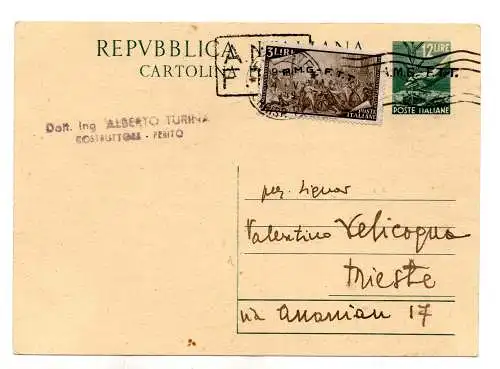 REPVBBLICA ITALIANA
CARTOLINA
3 LIRE
A.M.G. F.T.T.
POSTE
ITALIANE
12 LIRE
A.M.G. F.T.T.
POSTE ITALIANE
Dott. Ing ALBERTO TURINA
COSTRUTTORE - PERITO
Valentino Velicogna
Trieste
via Ananian 17